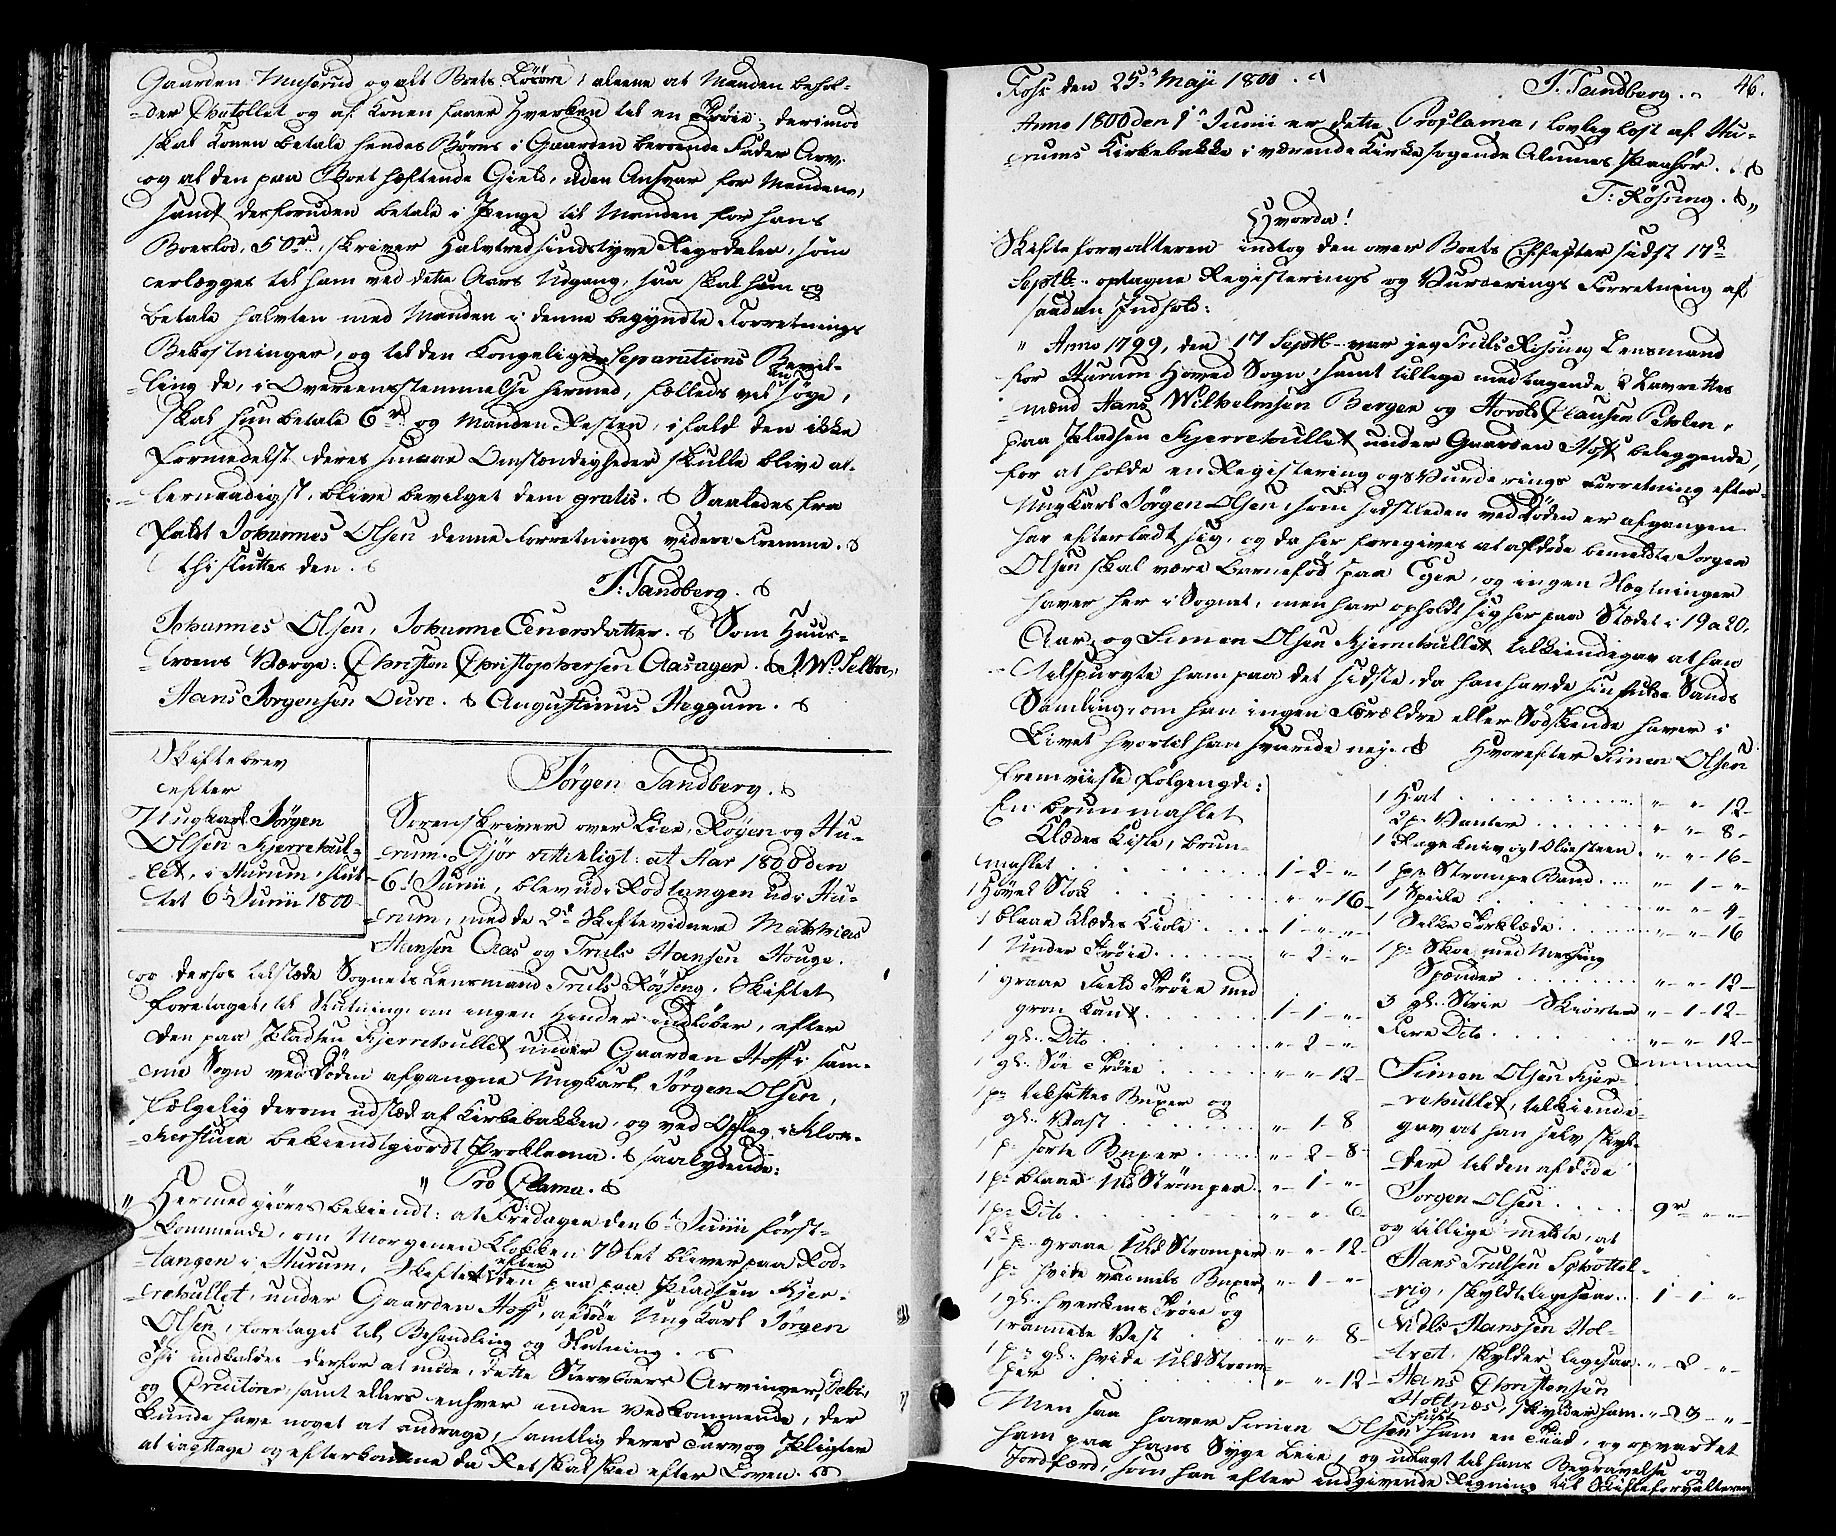 Gaarden Muserud og alt Boets Løsøre, alene at Manden behol-
der Chatollet og af Konen faaer Hverken til en Trøie; derimod
skal Konen betale hendes Børns i Gaarden beroende Fader Arv,
og al den paa Boet hæftende Gield, uden Ansvar for Manden,
samt desforuden betale i Penge til Manden for hans
Boeslod, 50 rd, skriver halvtredsindstyve Rigsdaler, som
erlægges til ham ved dette Aars Udgang, saa skal hun og
betale halvten med Manden i denne begyndte Forretnings
Bekostninger, og til den Kongelige Separations Bevil-
ling de, i Overeensstemmelse hermed, fælleds vil ansøge,
skal hun betale 6 rd og Manden Resten, ifald den ikke
formedelst deres smaae Omstændigheder skulle blive al-
lernaadigst blive bevilget dem gratis. Saaledes fra
faldt Johannes Olsen denne Forretnings videre Fremme.
thi sluttes den.
J: Tandberg.
Johannes Olsen, Johanne Enersdatter. Som Huus-
troens Værge: Christen Christophersen Aasager. J. W. Selboe,
Hans Jørgensen Oure. Augustinus Heggum.
Skiftebrev
efter
Ungkarl Jørgen
Olsen Kjerrehul-
let, i Hurum, slut-
tet 6te Junii 1800
Jørgen Tandberg.
Sorenskriver over Lier, Røyen og Hu-
rum. Gjør vitterligt: at Aar 1800 den
6te Junii, blev udi Rodtangen udi Hu-
rum, med de 2de Skiftevidner Mathias
Hansen Aas og Truls Hansen Houge.
og derhos tilstæde Sognets Lensmand Truls Røsing. Skiftet
foretaget, til Slutning om ingen Hinder indløber, efter
den paa Pladsen Kjerrehullet under Gaarden Hoff i sam-
me Sogn ved Døden afgangne Ungkarl Jørgen Olsen,
følgelig derom udstæd af Kirkebakken, og ved Opslag i Klok-
kerstuen bekiendtgiordt Proklama. saalydende:
" Pro Clama.
" Hermed giøres bekiendt: at Fredagen den 6te Junii først-
kommende, om Morgenen Klokken 7 Slet bliver paa Rod-
tangen i Hurum, Skiftet efter den paa paa Pladsen Kjer-
rehullet, under Gaarden Hoff, afdøde Ungkarl Jørgen
Olsen, foretaget til Behandling og Slutning.
Thi indkaldes derfor at møde, dette Sterboes Arvinger, Debi-
og Creditorer, samt ellers enhver anden Vedkommende, der
kunde have noget at andrage, samtlig deres Tarv og Pligter
at iagttage og efterkomme da Ret skal skee efter Loven.
46.
Foss den 25de Maji 1800. J. Tandberg.
Anno 1800 den 1te Junii er dette Proclama, lovlig læst af Hu-
rums Kirkebakke i værende Kirkesøgende Almues Paahør.
T: Røsing.
Hvorda!
Skifteforvalteren indtog den over Boets Effecter sidst 17de
Septbr. optagne Registerings og Vurderings Forretning af
saadan Indhold:
" Anno 1799, den 17 Septbr. var jeg Truls Røsing Lensmand
for Hurum Hoved Sogn, samt tillige medtagende 2 Laurettes
mænd Hans Wilhelmsen Berger og Hovel Clausen Pehlen,
paa Pladsen Kjerrehullet under Gaarden Hoff beleggende,
for at holde en Registering og Vurderings Forretning efter
Ungkarl Jørgen Olsen, som sidstleden ved Døden er afgangen
har efterladt sig, og da her foregives at afdøde bemeldte Jørgen
Olsen skal være barnefød paa Eger, og ingen Slægtninger
haver her i Sognet, men har opholdt sig her paa Stedet i 19 a 20.
Aar, og Simen Olsen Kjerrehullet tilkiendegav at han
tilspurgte ham paa det sidste, da han havde sin fulde Sands
Samling, om han ingen Forældre eller Sødskende haver i
Livet hvortil han svarede nej. Hvorefter Simen Olsen
fremviiste følgende:
En brunmahlet
Klædes Kiste, brun-
mahlet . . . 1 - 2 - "
1 Høvel Stok . . . " - " 16 -
1 blaae Klædes Kiole . . . 1 - " - "
1 Under Trøie . . . " - 2 - "
1 graae Field Trøie med
grøn Kant . . . 1 - 1 - "
1 gl. Dito . . . " - 2 - "
1 gl. Søe Trøie . . . " - " 12 -
1 pr. Buxer og
gl. Vest . . . " - 1 - 8
1 p. sorte Buxer . . . " - 2 - 8 -
1 p. blaae Uld Strømper . . . " - 1 - "
1 p. Dito . . . " - " 6 -
2de p. graae Uld Strømper " - " 12 -
1 p. hvide vadmels Buxer " - 1 - "
1 gl. hverkens Trøie og
rannete Vest . . . " - " 8 -
1 p. gl. hvide Uld Strøm-
per . . . " - " 12 -
1 Hat . . . " - " 12 -
2 p. Vanter . . . " - " 8 -
1 Rageknive og 1 Oliesteen . " - " 16 -
1 par Strømpe Baand . . . " - 1 - "
1 Speile . . . " - " 4 -
1 Silke Tørklæde . . . " - " 16
1 p. Skoe med Messing
Spænder . . . " - " 12 -
3 gl. Strie Skiorter " - 1 - 12 -
Fire Dito . . . " - " 12 -
Simen Olsen Kjer-
rehullet, tilkiende-
gav at han selv skyl-
der til den afdøde
Jørgen Olsen . . . 9 r - " - "
og tillige meldte, at
Hans Trulsen Sphottel-
vig, skyldte ligesaa . . 1 - 1 - "
Niels Hansen Hol-
tret, skylder ligesaa. " - 2 - "
Hans Christensen
Holtnæs, skylder ham. " - 23 - "
Men saa haver Simen Olsen huset ham en Tiid, og opvartet
ham paa hans Syge Leie, og udlagt til hans Begravelse og
Jordfærd, som han efter indgivende Regning til Skifteforvalteren